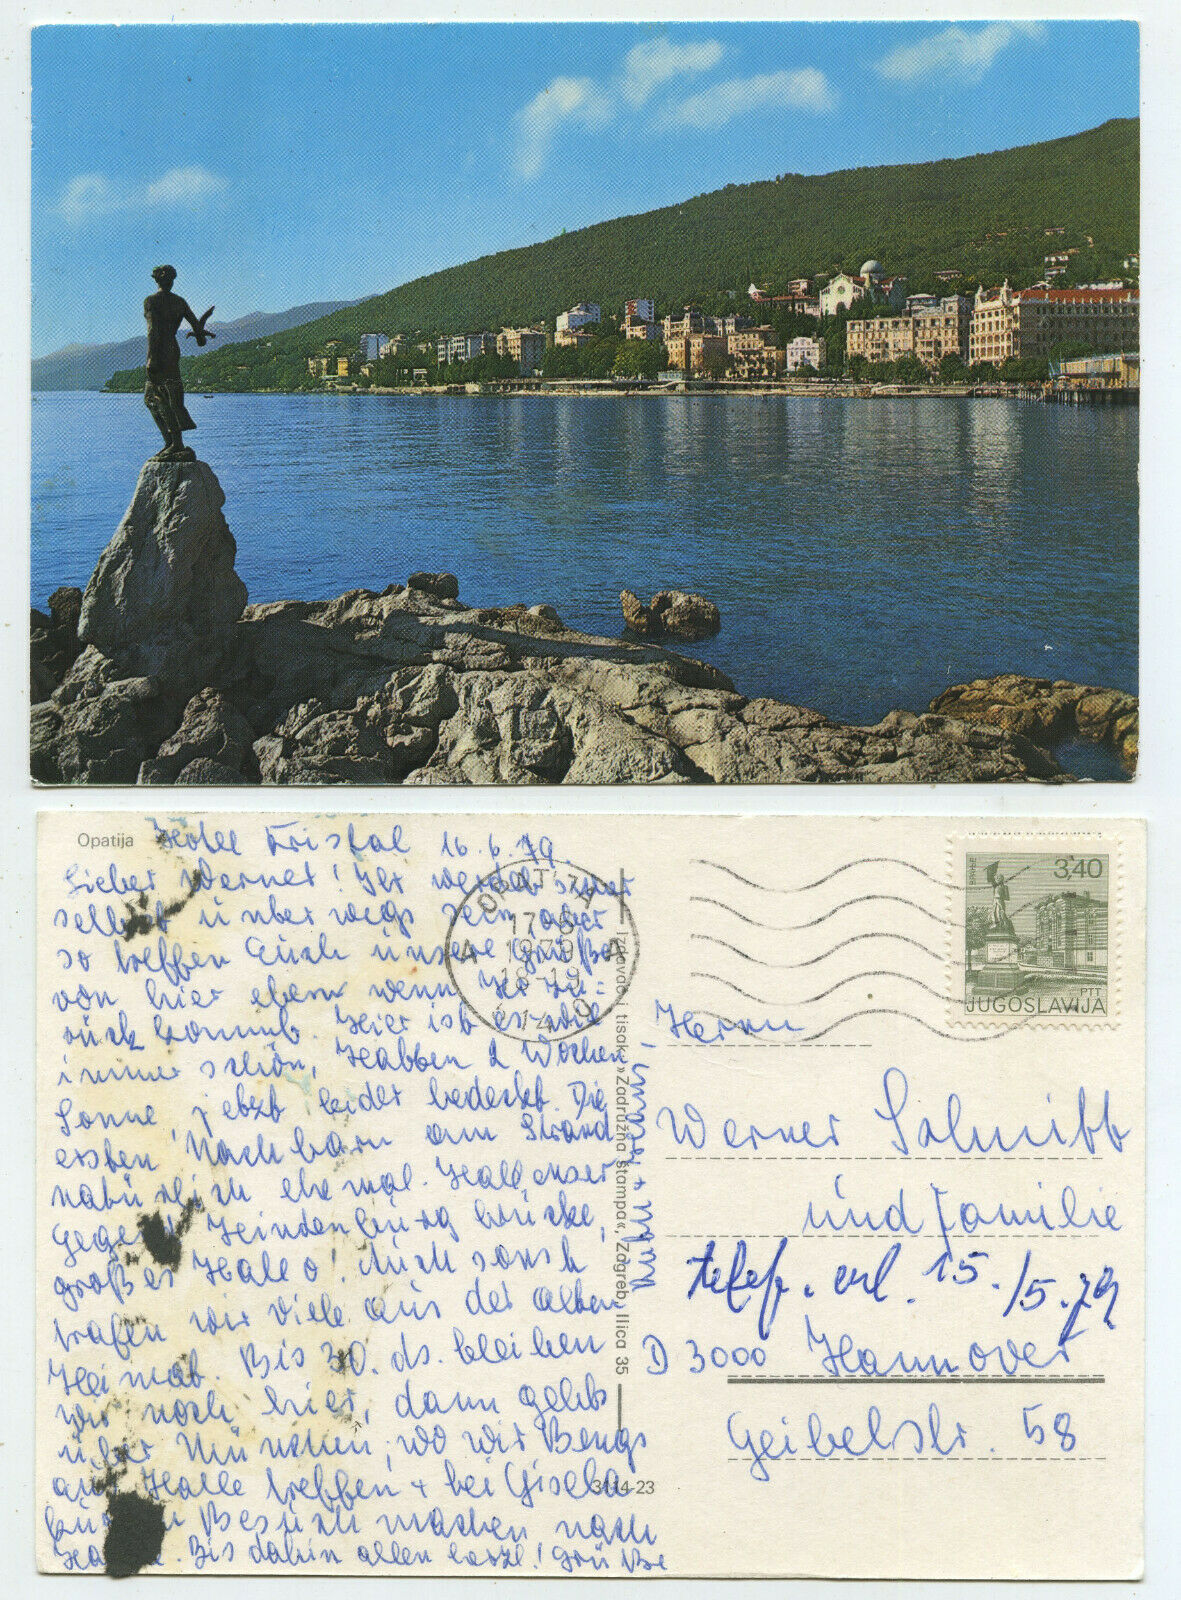 Opatija
Hotel Kristal 16.6.79.
Lieber Werner! Ihr werdet
selbst unterwegs sein aber
so treffen Euch unsere Grüße
von hier eben wenn Ihr zu=
rück kommt. Hier ist es wie
immer schön, Habben 2 Wochen
Sonne, jetzt leider bedeckt. Die
ersten Nachbarn am Strand
natürlich ehemal. Hallenser
Gegend Hindenburgbrücke,
großes Hallo! Auch sonst
trafen wir viele aus der alten
Heimat. Bis 30. ds. bleiben
wir noch hier, dann gehts
über München, wo wir
aus Halle treffen + bei Gisela
Besuch machen nach
Bis dahin allen herzl. Grüße
Izdavač i tisak: »Zadružna štampa«, Zagreb, Ilica 35
3114-23
OPATIJA
3,40
PTT
JUGOSLAVIJA
Herrn
Werner Schmitt
und Familie
telef. erl. 15./5.79
D 3000 Hannover
Geibelstr. 58